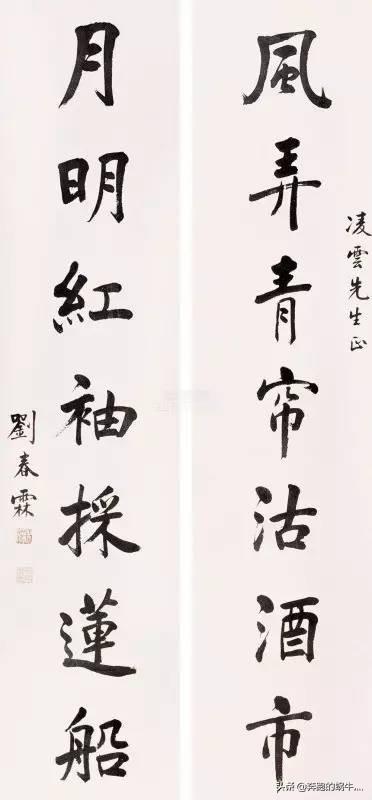 凌雲先生正
風弄青帘沽酒市
月明紅袖採蓮船
劉春霖
头条@奔跑的蜗牛....